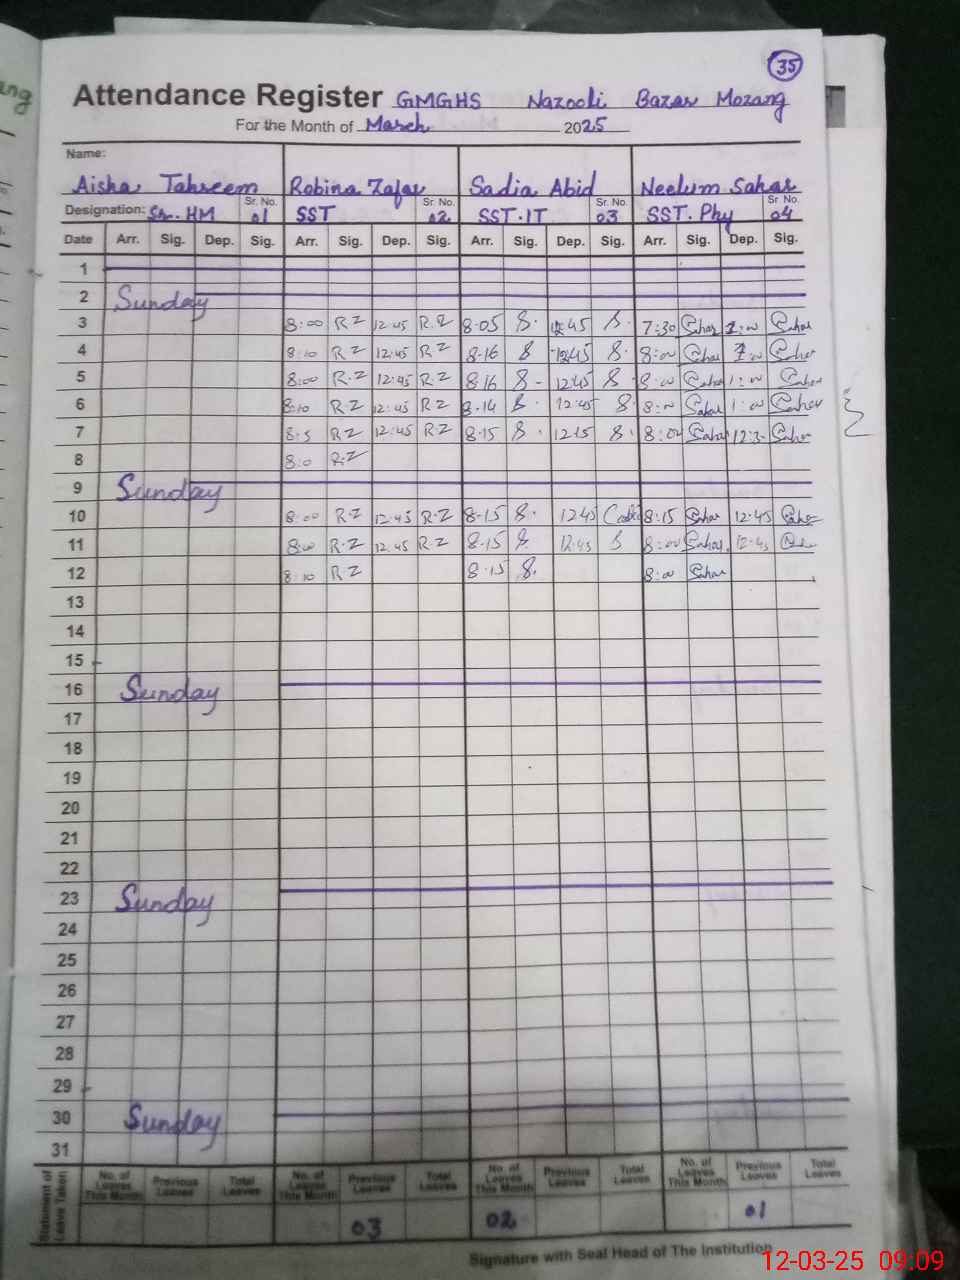 35
Attendance Register GMGHS Nazooli Bazar Mozang
For the Month of March 2025
Name:
Aisha Tahreem Robina Zafar Sadia Abid Neelum Sahar
Designation: Sr. HM Sr. No. 01 SST Sr. No. 02 SST.IT Sr. No. 03 SST. Phy Sr. No. 04
Date Arr. Sig. Dep. Sig. Arr. Sig. Dep. Sig. Arr. Sig. Dep. Sig. Arr. Sig. Dep. Sig.
1
2 Sunday
3 8:00 RZ 12:45 R.Z 8-05 S. 12:45 S. 7:30 Sahar 1:00 Sahar
4 8:10 RZ 12:45 RZ 8-16 S 12:45 S. 8:00 Sahar 1:00 Sahar
5 8:00 R.Z 12:45 R.Z 8.16 S- 12:45 S 8:00 Sahar 1:00 Sahar
6 8:10 R.Z 12:45 RZ 8.14 S. 12:45 S. 8:00 Sahar 1:00 Sahar
7 8:5 RZ 12:45 R.Z 8.15 S. 1215 S. 8:00 Sahar 12:3 Sahar
8 8:0 R.Z
9 Sunday
10 8:00 R.Z 12:45 R.Z 8-15 S. 1245 8:15 Sahar 12:45 Sahar
11 8:00 R.Z 12:45 R.Z 8.15 S. 12:45 S 8:00 Sahar 12:45
12 8:10 R.Z 8.15 S. 8:00 Sahar
13
14
15
16 Sunday
17
18
19
20
21
22
23 Sunday
24
25
26
27
28
29
30 Sunday
31
Statement of Leave Taken No. of Leaves This Month Previous Leaves Total Leaves No. of Leaves This Month Previous Leaves Total Leaves No. of Leaves This Month Previous Leaves Total Leaves No. of Leaves This Month Previous Leaves Total Leaves
03 02 01
Signature with Seal Head of The Institution
12-03-25 09:09